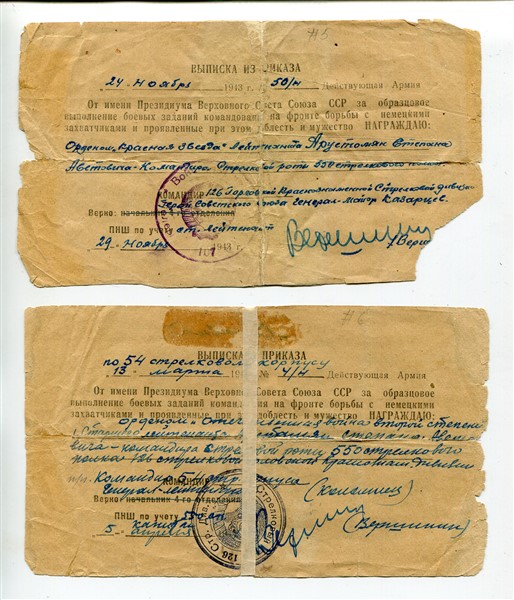 #6
ВЫПИСКА ИЗ ПРИКАЗА
24 ноября 1943 г. № 50/н Действующая Армия
От имени Президиума Верховного Совета Союза ССР за образцовое
выполнение боевых заданий командования на фронте борьбы с немецкими
захватчиками и проявленные при этом доблесть и мужество НАГРАЖДАЮ:
Орденом „Красная Звезда" Лейтенанта Арустомян Степана
Аветовича - Командира стрелковой роты 550 стрелкового полка
КОМАНДИР 126 Горловской Краснознаменной Стрелковой дивизии
Герой Советского Союза Генерал-майор Казарцев.
Верно: начальник 4-го отделения
ПНШ по учету ст. лейтенант
29 ноября 1943 г.
107
#6
ВЫПИСКА ПРИКАЗА
по 54 стрелковому корпусу
13 марта 194 № 4/н Действующая Армия
От имени Президиума Верховного Совета Союза ССР за образцовое
выполнение боевых заданий командования на фронте борьбы с немецкими
захватчиками и проявленные при доблесть и мужество НАГРАЖДАЮ:
орденом Отечественная война второй степени
Старшего лейтенанта Степана
командира стрелковой роты 550 стрелкового
полка 126 стрелковой Горловской дивизии
п/п. Командир корпуса
Генерал-лейтенант (Коломиец)
Верно: начальник 4-го отделения
ПНШ по учету 550 сп
капитан (Вершинин)
5 апреля
126 Стр. Див. Стрелков